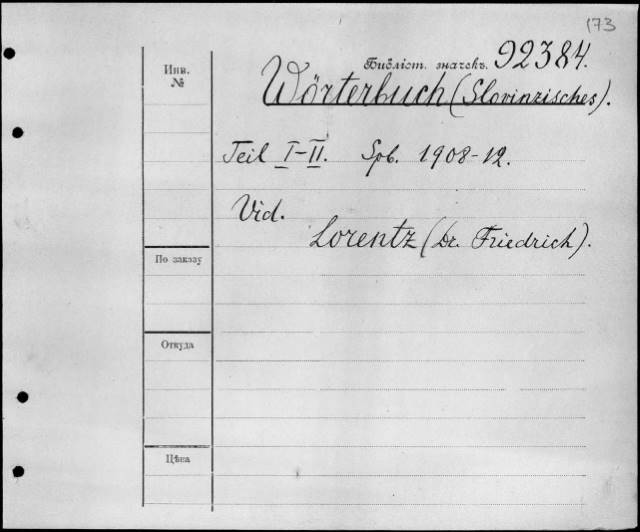 173
Библіот. значекъ. 92384.
Инв.
№
Wörterbuch (Slovinzisches).
Teil I-II. Spb. 1908-12.
Vid.
Lorentz (Dr. Friedrich).
По заказу
Откуда
Цѣна